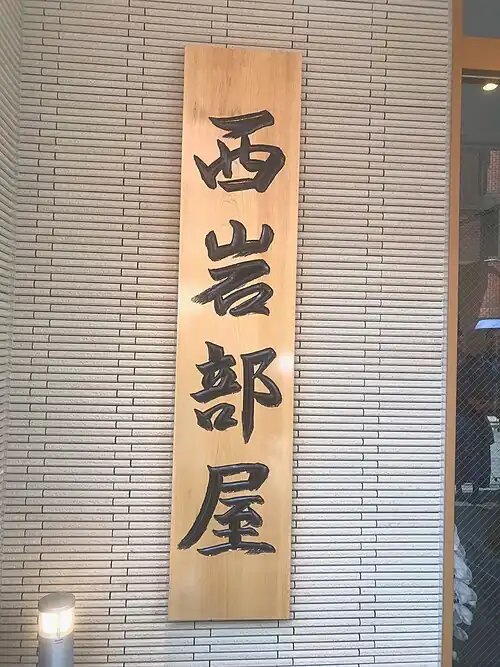 西岩部屋